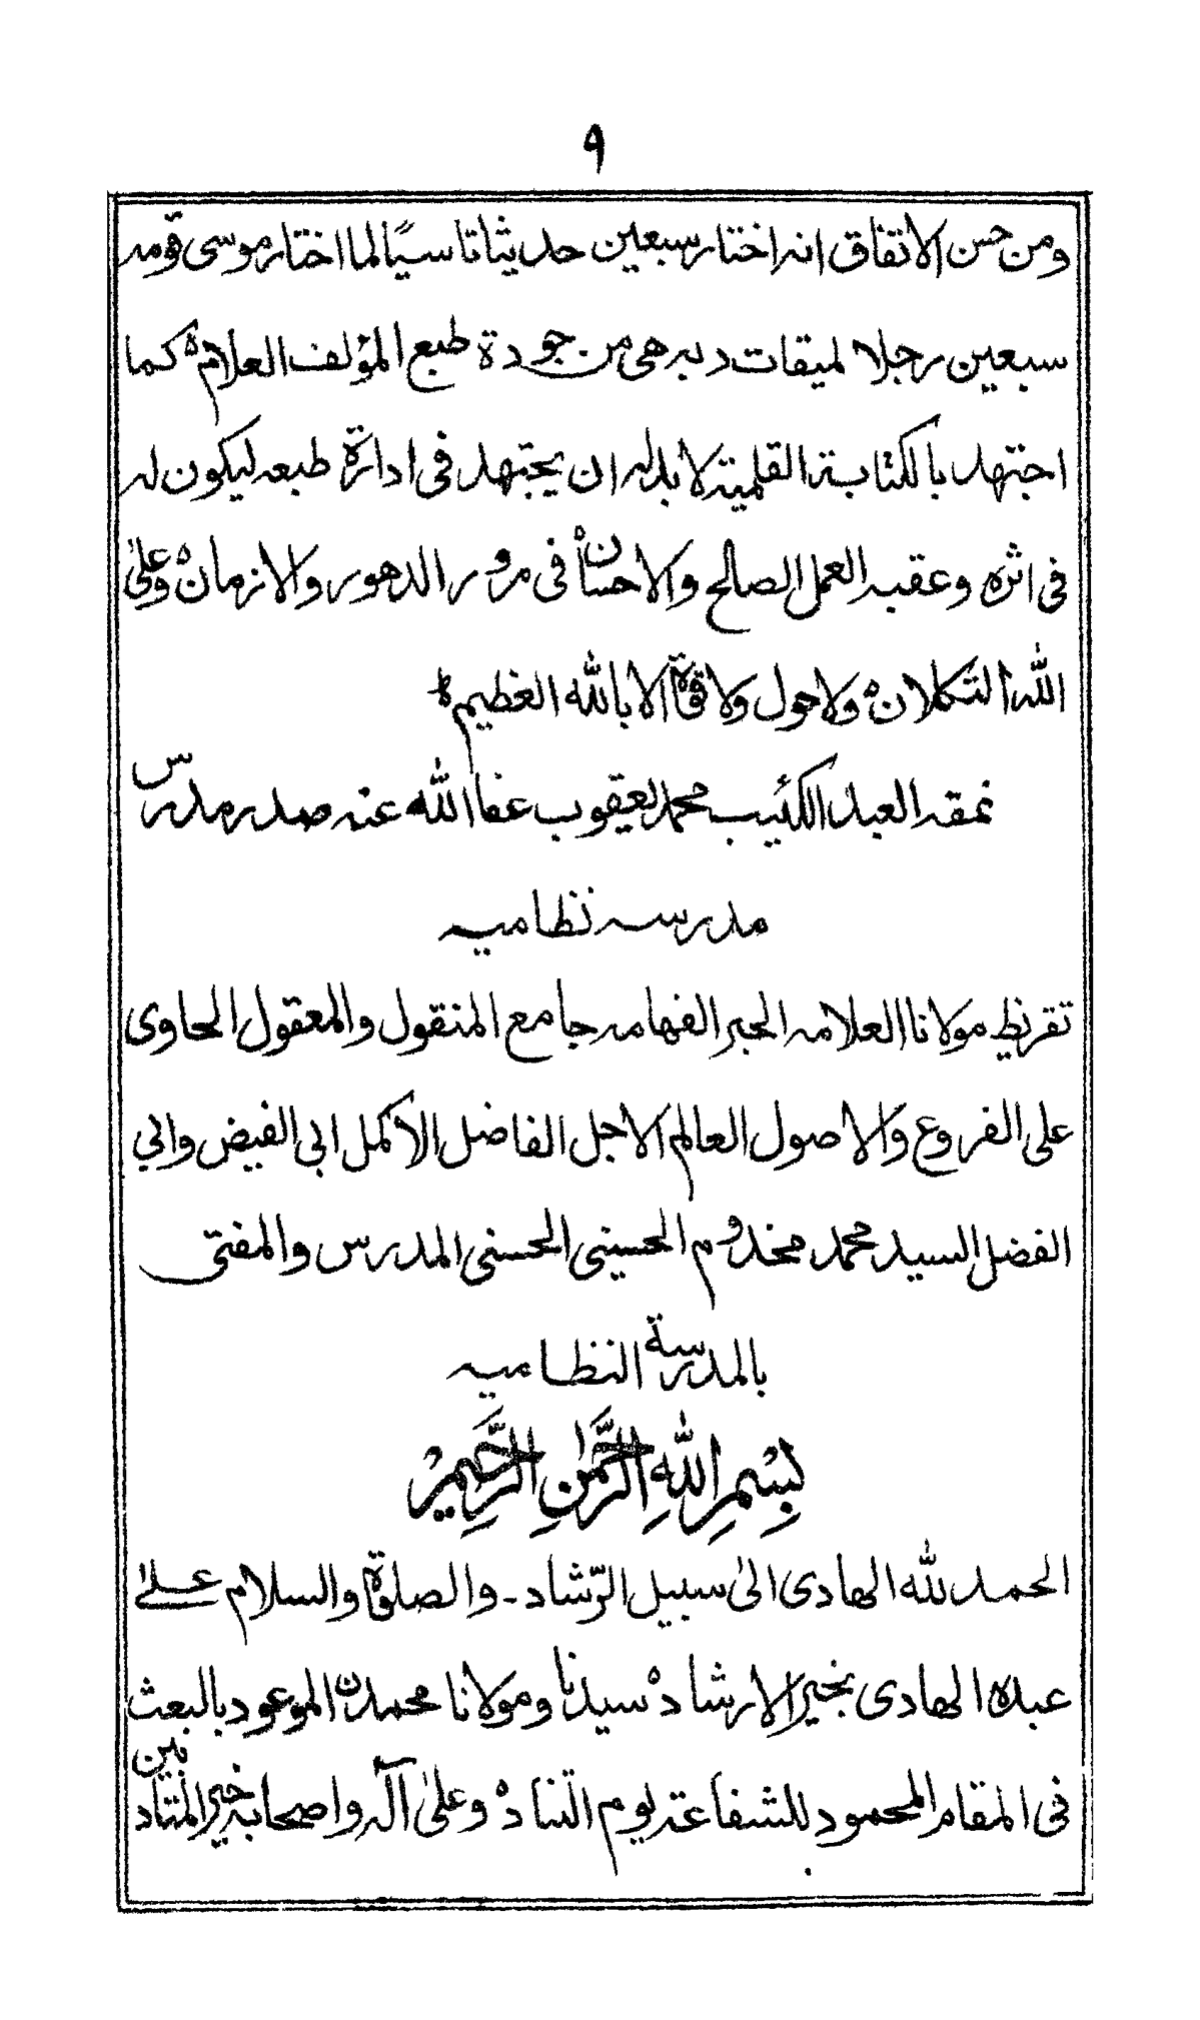 ٩
ومن حسن الاتفاق انه اختار سبعين حديثا تاسيًا لما اختار موسى قومه
سبعين رجلا لميقات ربه هى من جودة طبع المؤلف العلامة كما
اجتهد بالكتابة القلمية لا بد له ان يجتهد فى ادارة طبعه ليكون له
فى اثره وعقبه العمل الصالح والاحسان فى مرور الدهور والازمان وعلى
الله التكلان ولا حول ولا قوة الا بالله العظيم
نمقه العبد الكئيب محمد يعقوب عفا الله عنه صدر مدرس
مدرسه نظاميه
تقريظ مولانا العلامه الحبر الفهامه جامع المنقول والمعقول الحاوى
على الفروع والاصول العالم الاجل الفاضل الأكمل ابى الفيض وابي
الفضل السيد محمد مخدوم الحسينى الحسنى المدرس والمفتى
بالمدرسة النظاميه
بِسْمِ اللهِ الرَّحْمٰنِ الرَّحِيْمِ
الحمد لله الهادى الىٰ سبيل الرّشاد - والصلوة والسلام علىٰ
عبده الهادى بخير الارشاد ہ سيدنا ومولانا محمدن الموعود بالبعث
فى المقام المحمود للشفاعة يوم التناد ہ وعلىٰ آله واصحابه خير المتادبين